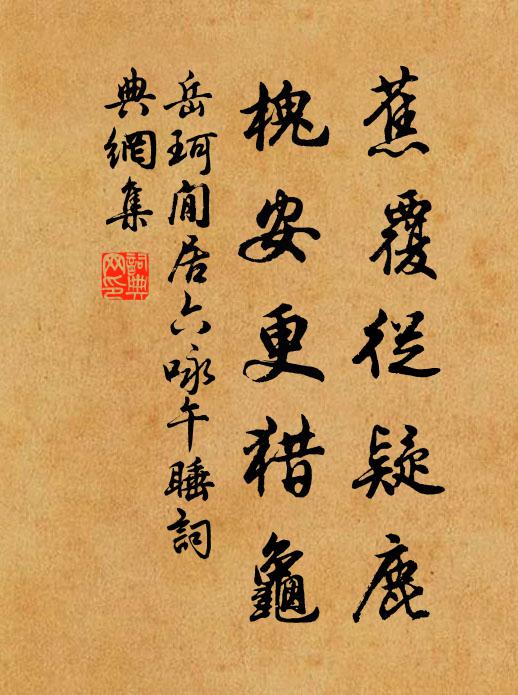 蕉覆從疑鹿
槐安更猎龜
岳珂閒居六咏午睡詞
典網集
詞典
网印